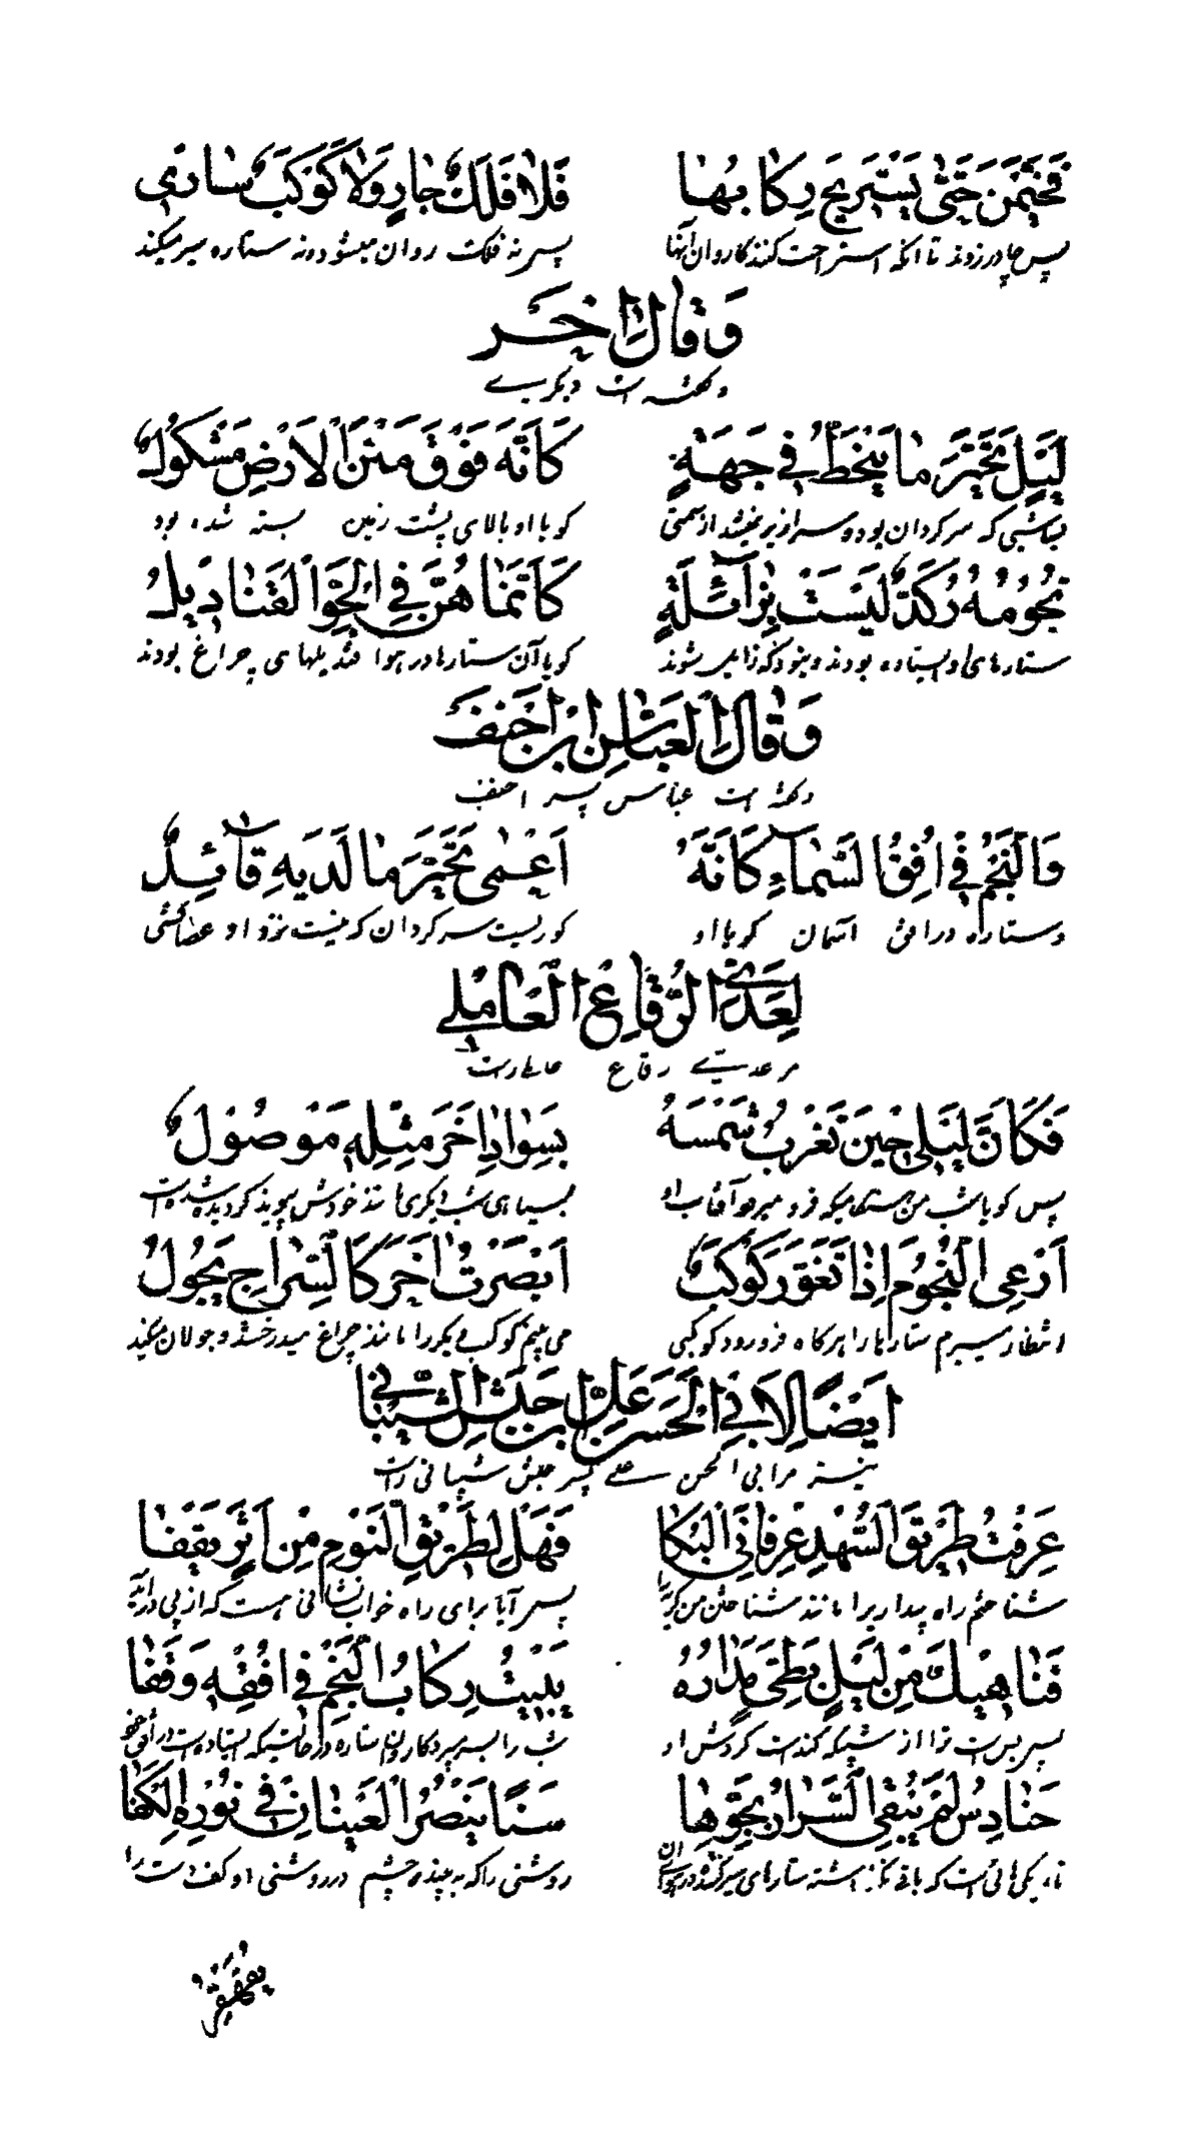 فَخَيَّمْنَ حَتّٰى يَسْتَرِيحَ رِكَابُهَا فَلَا فَلَكٌ جَارٍ وَلَا كَوْكَبٌ سَارِي
پس چادر زدند تا آنکه استراحت کنند کاروان آنها پس نه فلک روان میشود و نه ستاره سیر میکند
وَقَالَ اٰخَر
و گفته است دیگرے
لَيْلٌ تَحَيَّرَ مَا يَنْحَطُّ فِي جَهَةٍ كَأَنَّهُ فَوْقَ مَتْنِ الْأَرْضِ مَشْكُولٌ
شبی که سرگردان بود و سرازیر نمیشد از سمتی گویا او بالای پشت زمین بسته شده بود
نُجُومُهُ رُكَّدٌ لَيْسَتْ بِزَائِلَةٍ كَأَنَّمَا هُنَّ فِي الْجَوِّ الْقَنَادِيلُ
ستارهای او ایستاده بودند و نبود که زایل شوند گویا آن ستارها در هوا قندیلهای چراغ بودند
وَقَالَ الْعَبَّاسُ ابْنُ احْنَف
و گفته است عباس پسر احنف
وَالنَّجْمُ فِي اُفُقِ السَّمَاءِ كَأَنَّهُ اَعْمٰى تَحَيَّرَ مَا لَدَيْهِ قَائِدٌ
و ستاره در افق آسمان گویا او کوریست سرگردان که نیست نزد او عصاکشی
لِعَدِيِّ الرِّقَاعِ الْعَامِلِي
مر عدیّ رقاع عاملی راست
فَكَأَنَّ لَيْلِي حِينَ تَغْرُبُ شَمْسُهُ بِسَوَادِ اٰخَرَ مِثْلِهِ مَوْصُولٌ
پس گویا شب من هنگامیکه فرو میرود آفتاب او بسیاهی شب دیگری مانند خودش پیوند گردیده شده است
اَرْعَى النُّجُومَ اِذَا تَغَوَّرَ كَوْكَبٌ اَبْصَرْتُ اٰخَرَ كَالسِّرَاجِ يَجُولُ
انتظار میبرم ستارها را هرگاه فرو رود کوکبی می بینم کوکب دیگر را مانند چراغ میدرخشد و جولان میکند
اَيْضًا لِاَبِي الْحَسَنِ عَلِيِّ ابْنِ الشَّيْبَانِي
نیز مر ابی الحسن علی پسر شیبانی راست
عَرَفْتُ طَرِيقَ السُّهْدِ عِرْفَانِيَ الْبُكَا فَهَلْ لِطَرِيقِ النَّوْمِ مِنْ اَثَرٍ يُقْفَا
شناختم راه بیداری را مانند شناختن من گریه را پس آیا برای راه خواب نشانی هست که از پی در آیند
فَنَاهِيكَ مِنْ لَيْلٍ بَطِيءٍ مَدَارُهُ يَبِيتُ رِكَابُ النَّجْمِ فِي اُفُقِهِ وَقْفَا
پس بس است ترا از شبیکه کند است گردش او شب را بسر میبرد کاروان ستاره در حالتیکه ایستاده است در افق خود
حَنَادِسُ لَمْ يُبْقِ السَّرَارُ بِجَوِّهَا سَنًا يُبْصِرُ الْعَيْنَانِ فِي نُورِهِ الْكَفَّا
تاریکی هائی است که باقی نگذاشته ستارهای روشنی را که به بیند چشم در روشنی او کف دست را